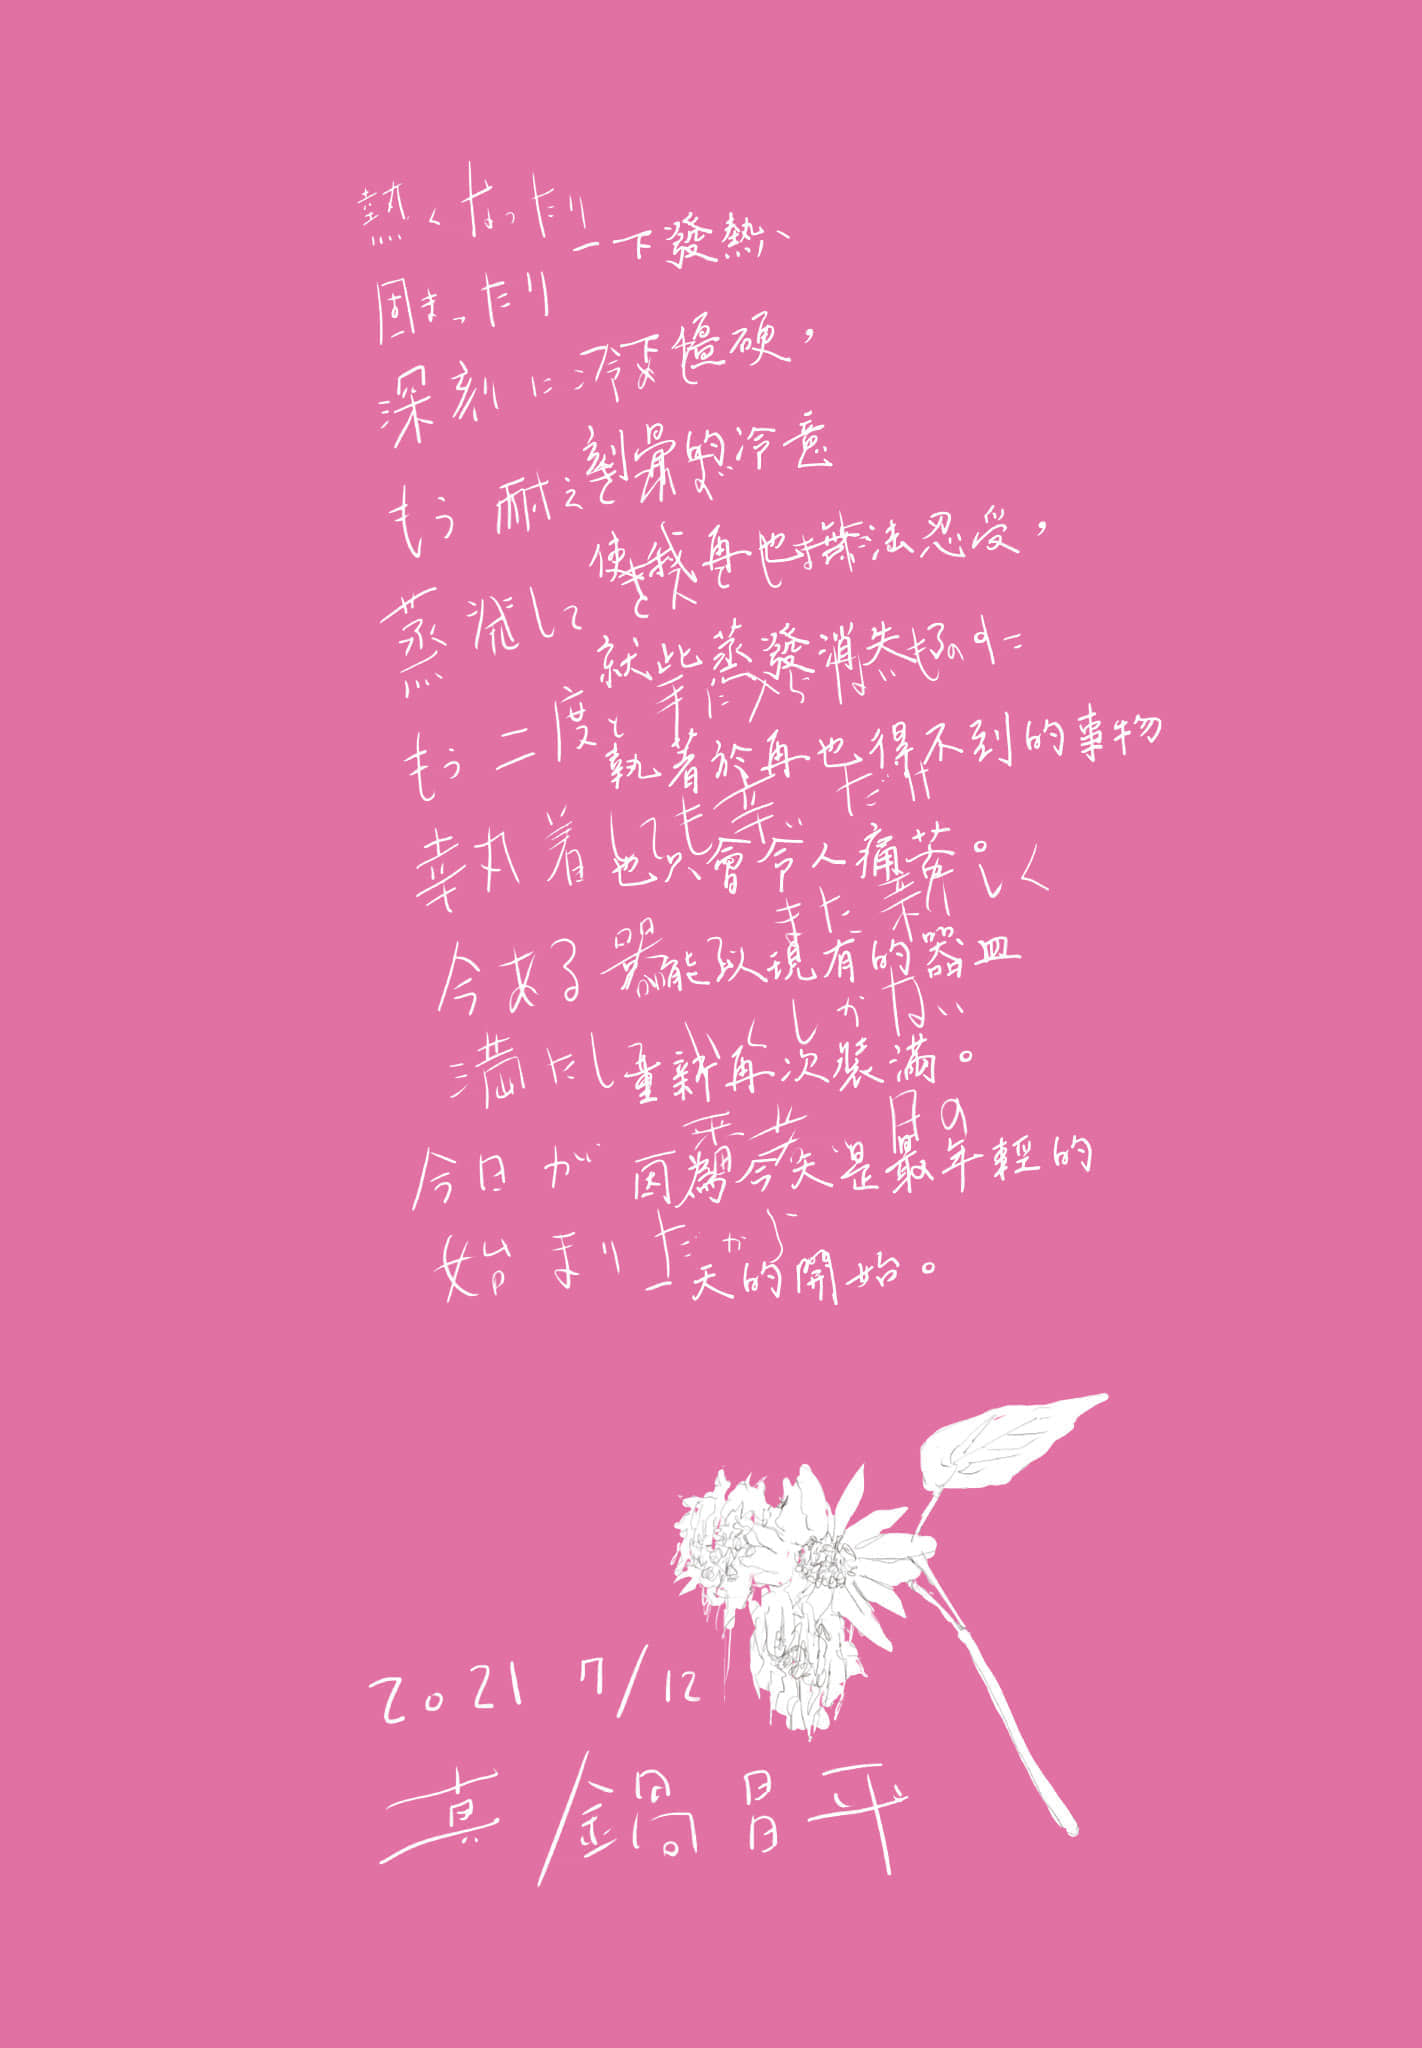 熱くなったり
一下發熱、
固まったり
一下僵硬，
深刻に冷め
刻骨的冷意
もう耐え
使我再也無法忍受，
蒸発して
就此蒸發消失
もう二度と手に入らないものに
執著於再也得不到的事物
執着しても辛いだけ
也只會令人痛苦。
今ある器
また新しく
只能以現有的器皿
満たしていくしかない
重新再次裝滿。
今日が
日の
因為今天是最年輕的
始まりだから
一天的開始。
2021 7/12
真鍋昌平